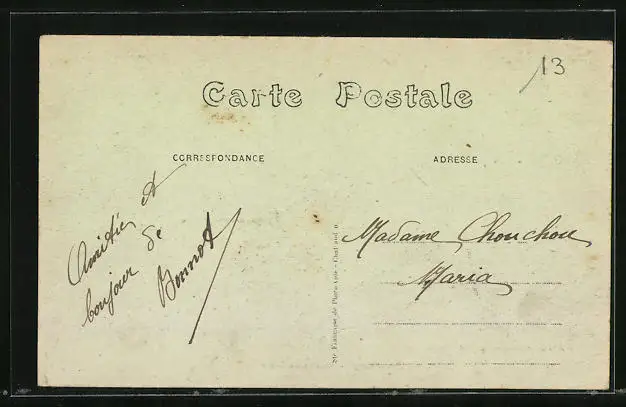 13
Carte Postale
CORRESPONDANCE
ADRESSE
Amitié et
bonjour de
Bonnot
Madame Chouchou
Maria
Sté Française de Phototypie